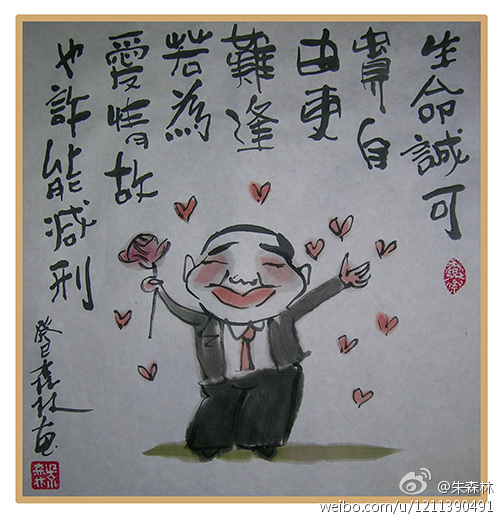 生命誠可
貴自
由更
難逢
若為
愛情故
也許能减刑
癸巳森林画
@朱森林
weibo.com/u/1211390491